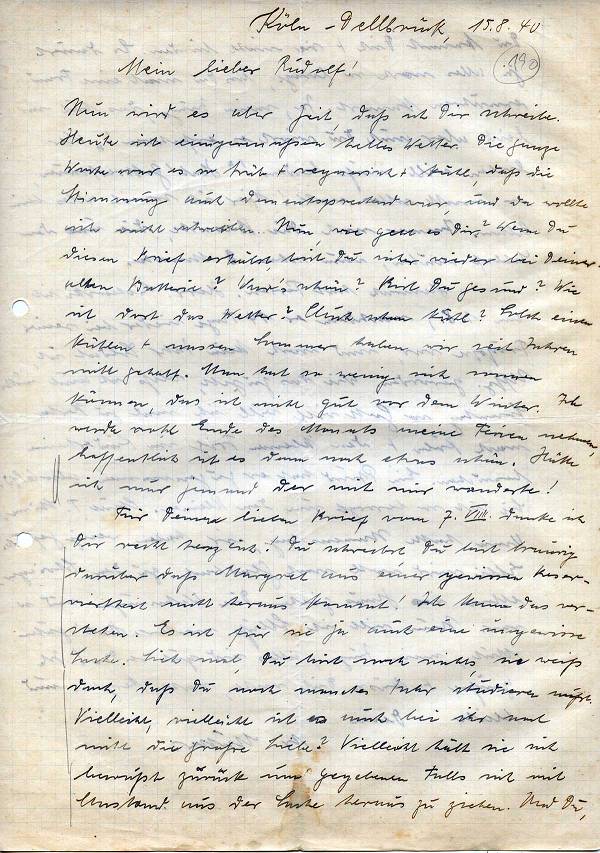 Köln-Dellbrück, 15.8.40
190
Mein lieber Rudolf!
Nun wird es aber Zeit, daß ich Dir schreibe.
Heute ist einigermaßen helles Wetter. Die ganze
Woche war es so trüb + regnerisch + kühl, daß die
Stimmung auch dementsprechend war, und da wollte
ich nicht schreiben. Nun wie geht es Dir? Wenn Du
diesen Brief erhälst, bist Du sicher wieder bei Deiner
alten Batterie? War's schön? Bist Du gesund? Wie
ist dort das Wetter? Auch schon kühl? Solch einen
kühlen + nassen Sommer haben wir seit Jahren
nicht gehabt. Man hat so wenig sich sonnen
können, das ist nicht gut vor dem Winter. Ich
werde wohl Ende des Monats meine Ferien nehmen,
hoffentlich ist es dann noch etwas schön. Hätte
ich nur jemand der mit mir wanderte!
Für Deinen lieben Brief vom 7. VIII. danke ich
Dir recht herzlich! Du schreibst, Du bist traurig
darüber daß Margret aus einer gewissen Reser-
viertheit nicht heraus kommt! Ich kann das ver-
stehen. Es ist für sie ja auch eine ungewisse
Sache. Sieh mal, Du bist noch nichts, sie weiß
doch, daß Du noch manches Jahr studieren mußt.
Vielleicht, vielleicht ist es auch bei ihr noch
nicht die große Liebe? Vielleicht hält sie sich
bewußt zurück um gegebenen Falls sich mit
Anstand aus der Sache heraus zu ziehen. Und Du,